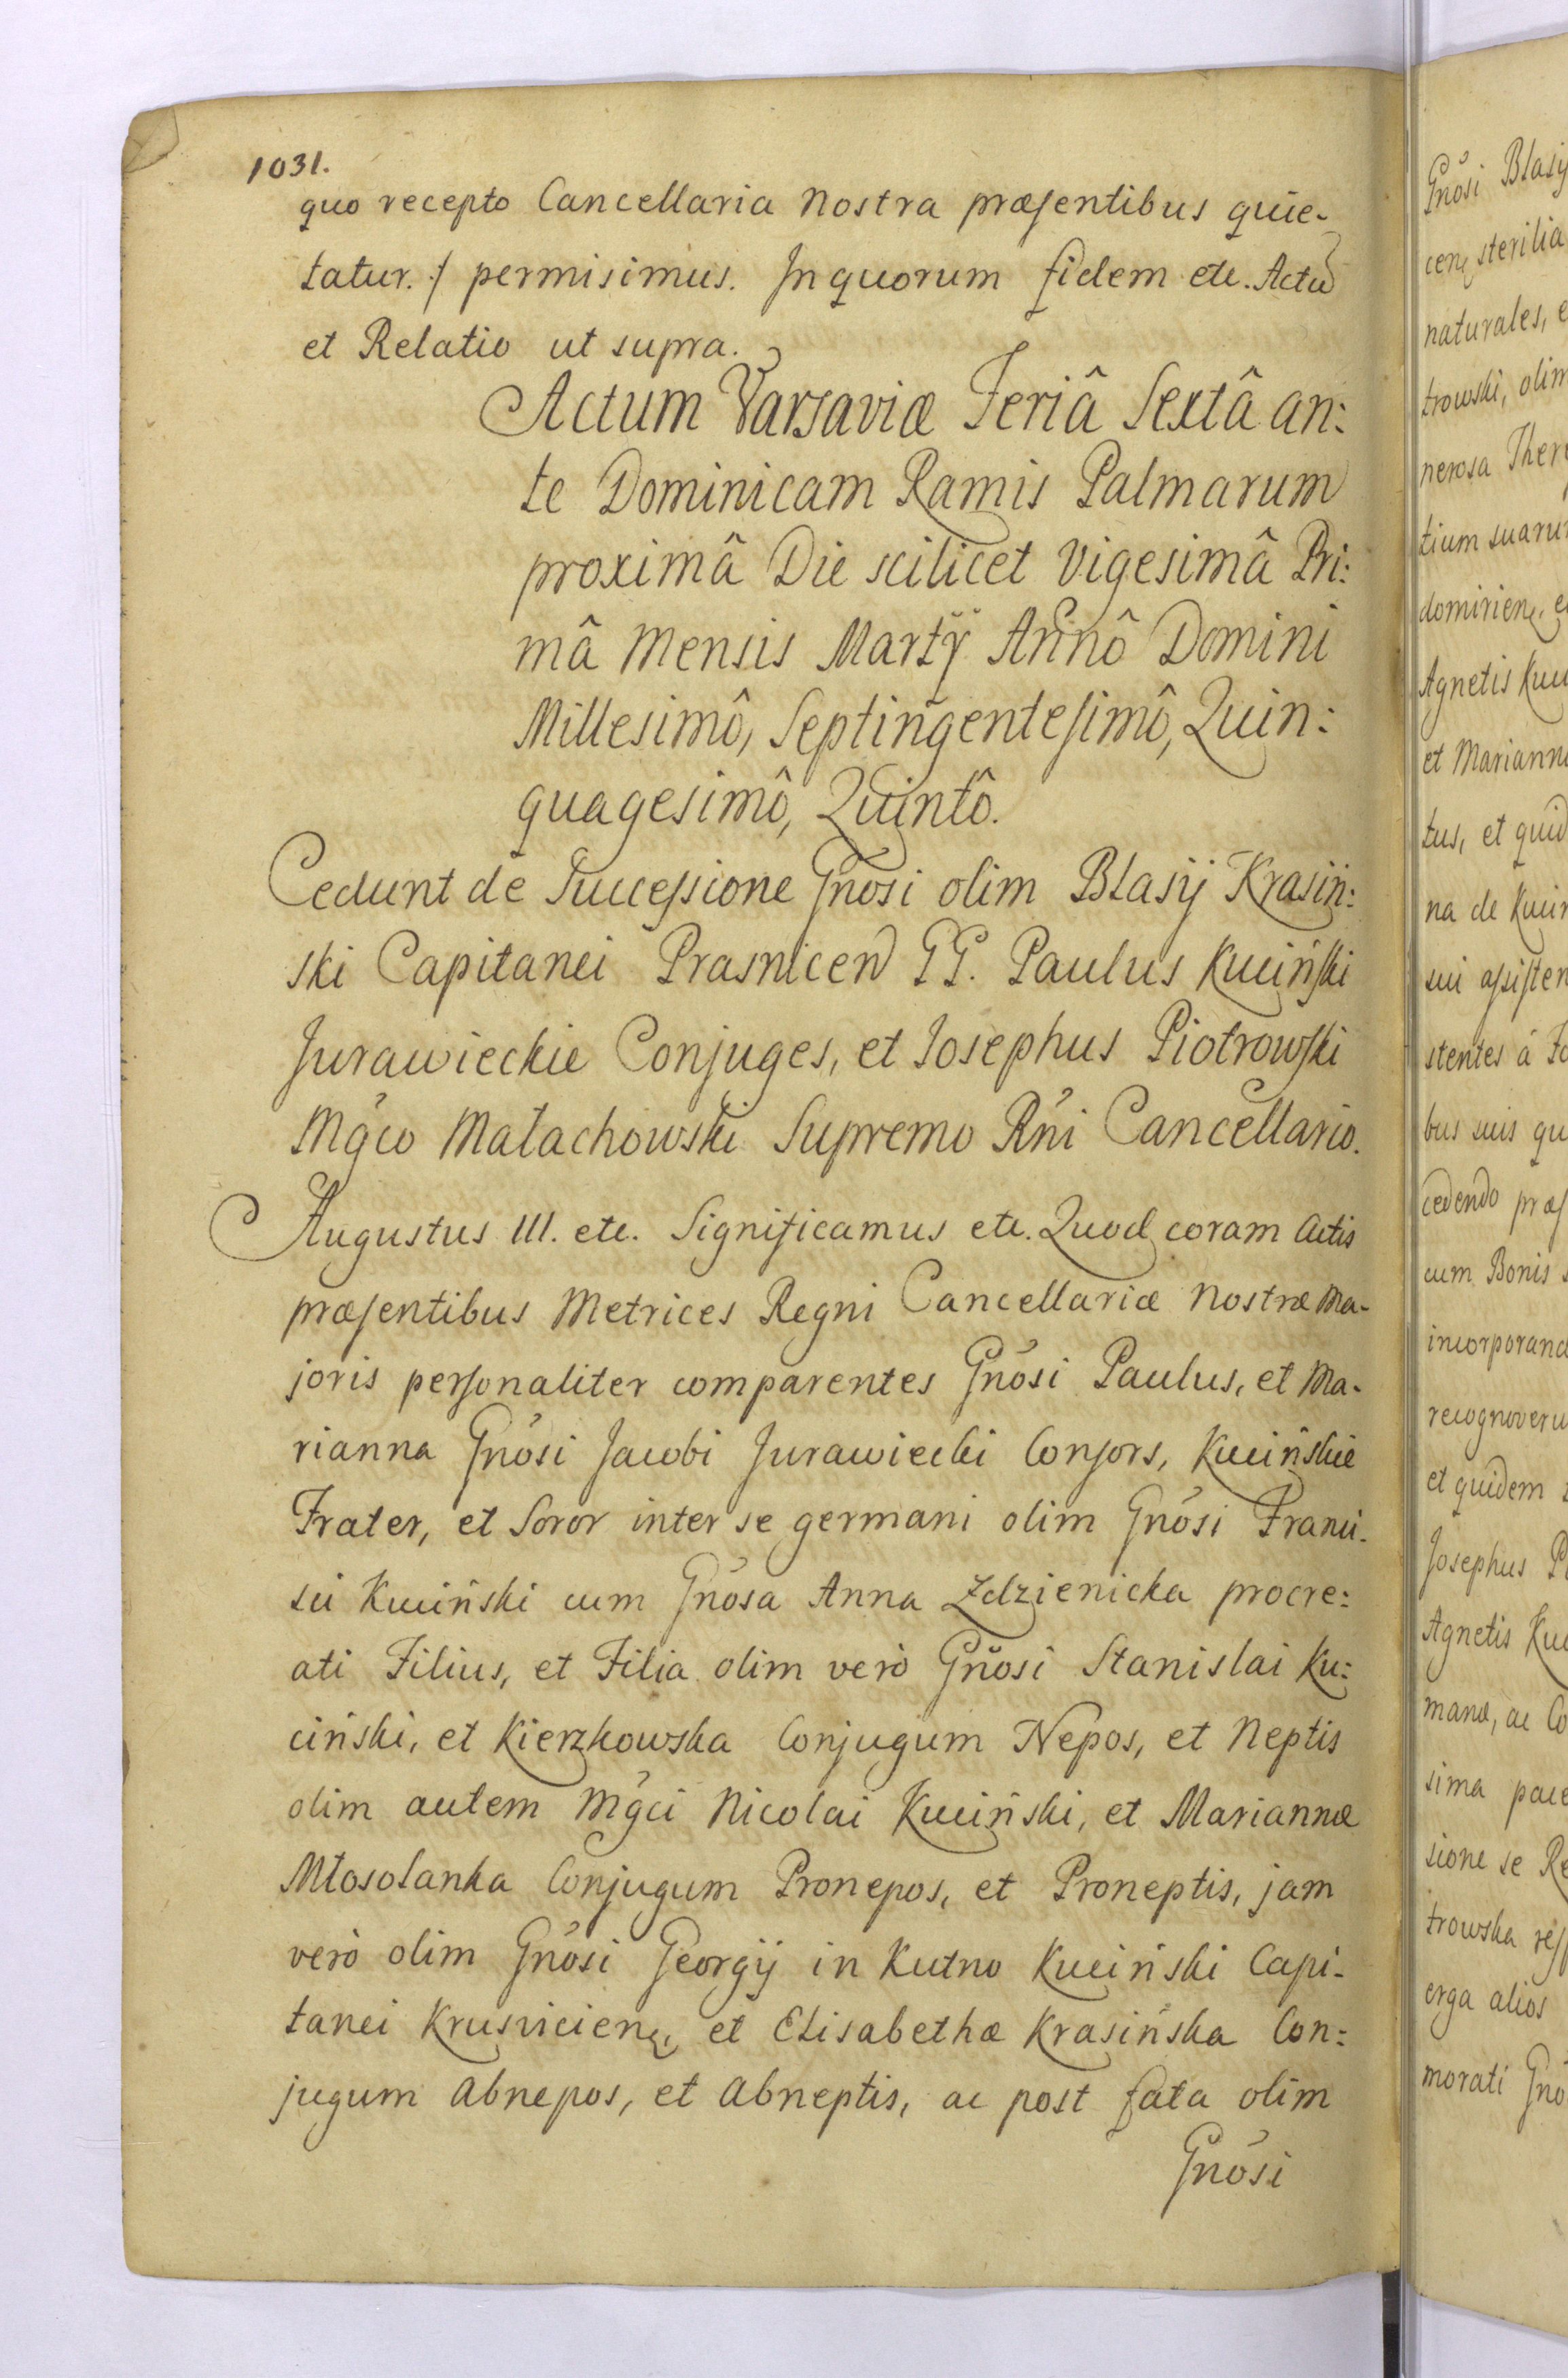 1031.
quo recepto Cancellaria Nostra præsentibus quie-
tatur. ⁒ permisimus. In quorum fidem etc. Actu
et Relatio ut supra.
Actum Varsaviæ Feriâ Sextâ an:
te Dominicam Ramis Palmarum
proximâ Die scilicet Vigesimâ Pri:
mâ Mensis Martÿ Annô Domini
Millesimô, Septingentesimô, Quin:
quagesimô, Quintô.
Cedunt de Successione Gnosi olim Blasÿ Krasiń:
ski Capitanei Prasnicen GG. Paulus Kuciński
Jurawieckie Conjuges, et Josephus Piotrowski
Mgco Małachowski Supremo Rni Cancellario.
Augustus III. etc. Significamus etc. Quod coram Actis
præsentibus Metrices Regni Cancellariæ Nostræ Ma-
joris personaliter comparentes Gnosi Paulus, et Ma-
rianna Gnosi Jacobi Jurawiecki Consors, Kucińskie
Frater, et Soror inter se germani olim Gnosi Franci-
sci Kuciński cum Gnosa Anna Zdzienicka procre:
ati Filius, et Filia olim verò Gnosi Stanislai Ku:
ciński, et Kierzkowska Conjugum Nepos, et Neptis
olim autem Mgci Nicolai Kuciński, et Mariannæ
Młosolanka Conjugum Pronepos, et Proneptis, jam
verò olim Gnosi Georgÿ in Kutno Kuciński Capi-
tanei Krusvicien, et Elisabethæ Krasińska Con:
jugum Abnepos, et Abneptis, ac post fata olim
Gnosi
Gnosi Blasÿ
cen, sterilia
naturales, e
trowski, olim
nerosa Ther
tium suaru
domirien, e
Agnetis Kuci
et Marianna
tus, et quid
na de Kucin
sui assisten
stentes à
bus suis qu
cedendo præs
cum Bonis
incorporand
recognoveru
et quidem
Josephus P
Agnetis Kuc
manæ, ac Co
sima pace
sione se Re
trowska resp
erga alios
morati Gno